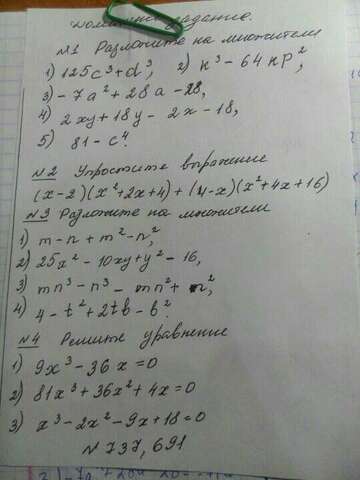 Домашнее задание.
№1 Разложите на множители
1) 125c³+d³, 2) k³-64kp²,
3) -7a²+28a-28,
4) 2xy+18y-2x-18,
5) 81-c⁴.
№2 Упростите выражение
(x-2)(x²+2x+4)+(4-x)(x²+4x+16)
№3 Разложите на множители
1) m-n+m²-n²,
2) 25x²-10xy+y²-16,
3) mn³-n³-mn²+n²,
4) 4-t²+2tb-b².
№4 Решите уравнение
1) 9x³-36x=0
2) 81x³+36x²+4x=0
3) x³-2x²-9x+18=0
№737, 691